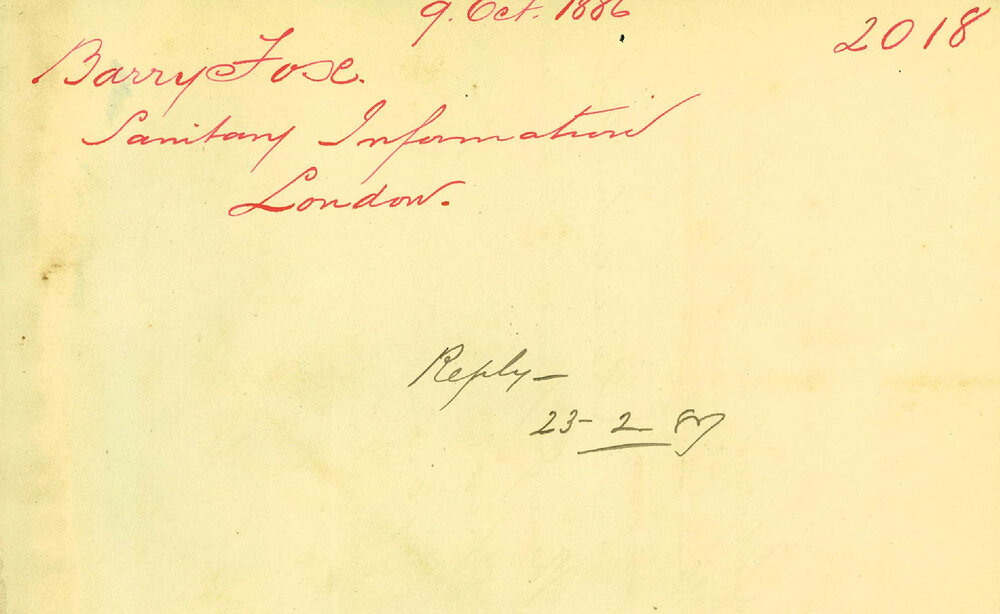 9. Oct. 1886
2018
Barry Fox.
Sanitary Information
London.
Reply -
23 - 2 87